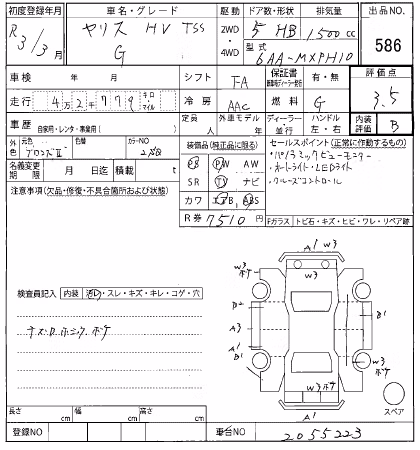 初度登録年月
車名・グレード
駆動
ドア数・形状
排気量
出品NO.
R3/3月
ヤリス HV TSS
G
2WD
・
4WD
5 HB
1,500cc
型式
6AA-MXPH10
586
車検 年 月
シフト
FA
保証書
有・無
評価点
走行
4万2千779
キロ
マイル
冷房
AAC
燃料
G
3.5
車歴
自家用・レンタ・事業用( )
定員
人
外車モデル
年
ディーラー
・
並行
ハンドル
左・右
内装
評価
B
外色
元色
ブロンズⅡ
色替
カラーNO
装備品(純正品に限る)
PS PW AW
SR TV ナビ
カワ エアB ABS
R券 7510 円
セールスポイント(正常に作動するもの)
・パノラミックビューモニター
・オートライト・LEDライト
・クルーズコントロール
名義変更
期限
月 日迄
積載
t
注意事項(欠品・修復・不具合箇所および状態)
Fガラス
トビ石・キズ・ヒビ・ワレ・リペア跡
検査員記入
内装
汚レ・スレ・キズ・キレ・コゲ・穴
A1 W3
W3
W3
W3
B2
B1
A3
A1
B1
W3
W3
W3
A1
スペア
長さ cm
幅 cm
高さ cm
登録NO
車台NO
2055223